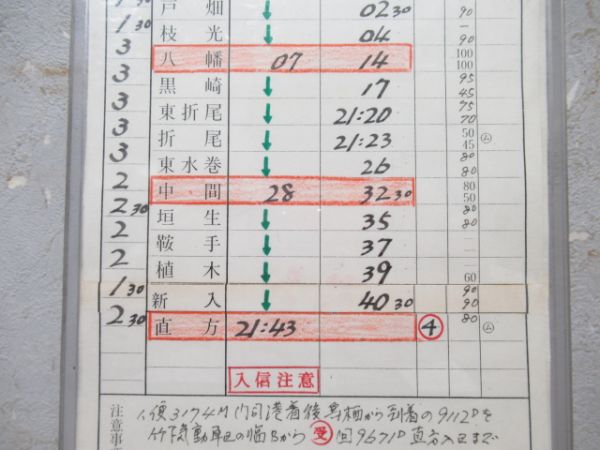 1 30 戸畑 ↓ 02 30 90
1 30 枝光 ↓ 04 — 90
3 八幡 07 14 100 100
3 黒崎 ↓ 17 95 45
3 東折尾 ↓ 21:20 75 70
3 折尾 ↓ 21:23 50 45 ム
3 東水巻 ↓ 26 80 80
2 中間 28 32 30 80 50
2 30 垣生 ↓ 35 80 80
2 鞍手 ↓ 37
2 植木 ↓ 39 60
1 30 新入 ↓ 40 30 90 90
2 30 直方 21:43 4 80 ム
入信注意
注意事
便3174M 港着後 から到着の9112Dを
気動車 から 受 回9671D直方入区まで